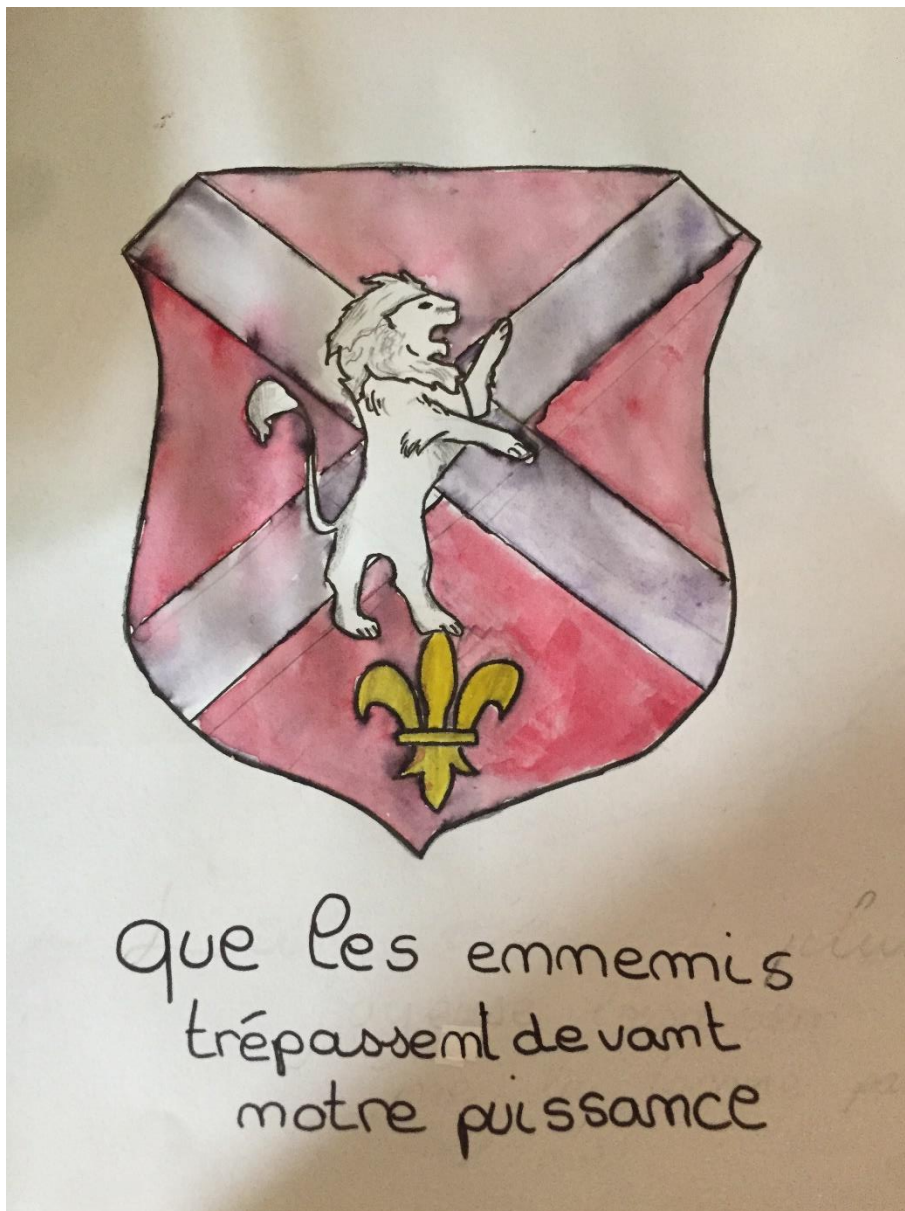 Que les ennemis
trépassent devant
notre puissance